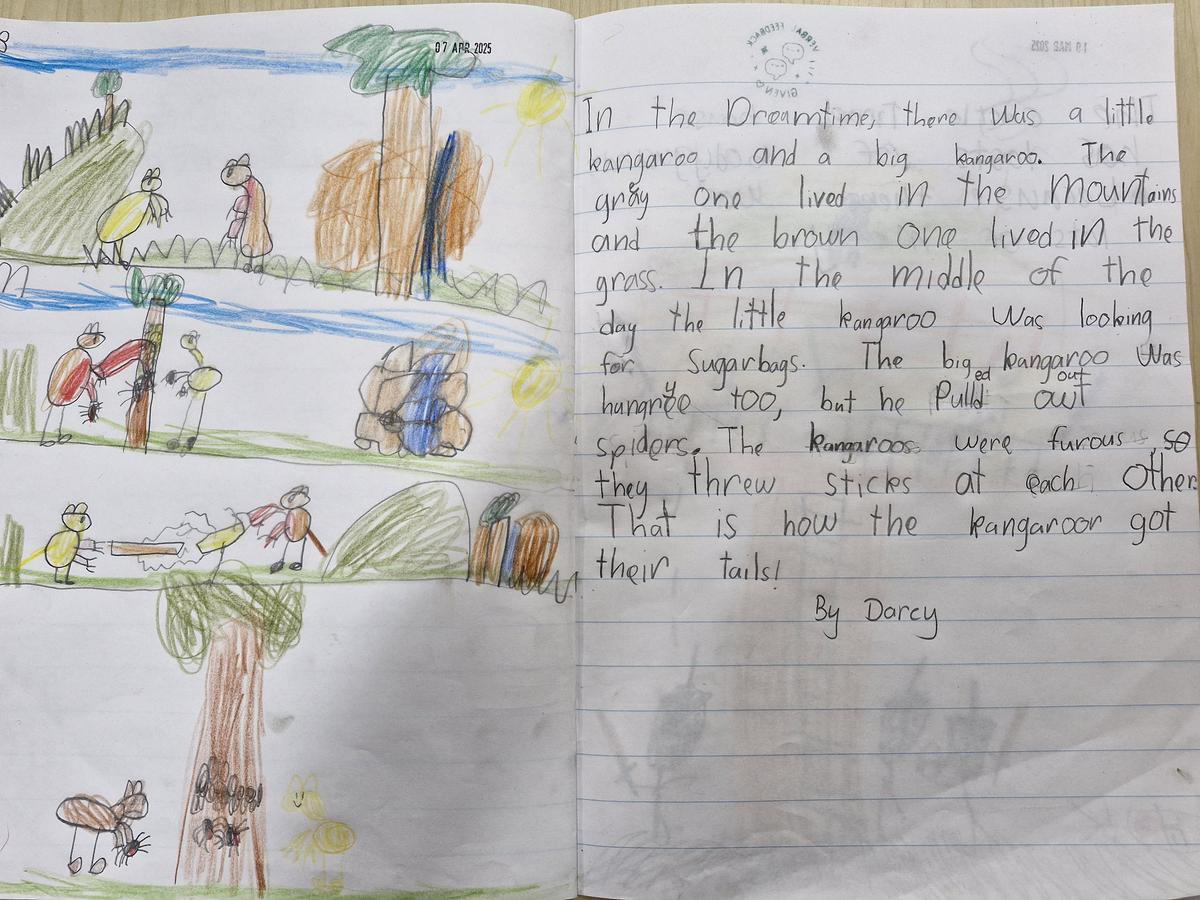 07 APR 2025
VERBAL FEEDBACK
GIVEN
19 MAR 2025
In the Dreamtime, there was a little
kangaroo and a big kangaroo. The
gray one lived in the mountains
and the brown one lived in the
grass. In the middle of the
day the little kangaroo was looking
for Sugarbags. The big kangaroo was
hungry too, but he Pulled out out
spiders. The kangaroos were furous, so
they threw sticks at each other.
That is how the kangaroor got
their tails!
By Darcy